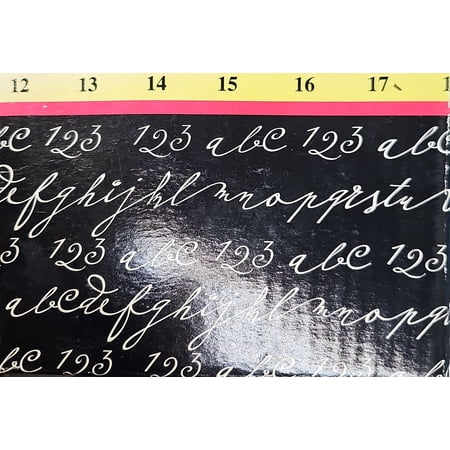 12 13 14 15 16 17
abc 123 abc 123 abc
defghijklmnopqrstu
123 abc 123 abc 123
abcdefghijklmnopq
abc 123 abc 123 abc